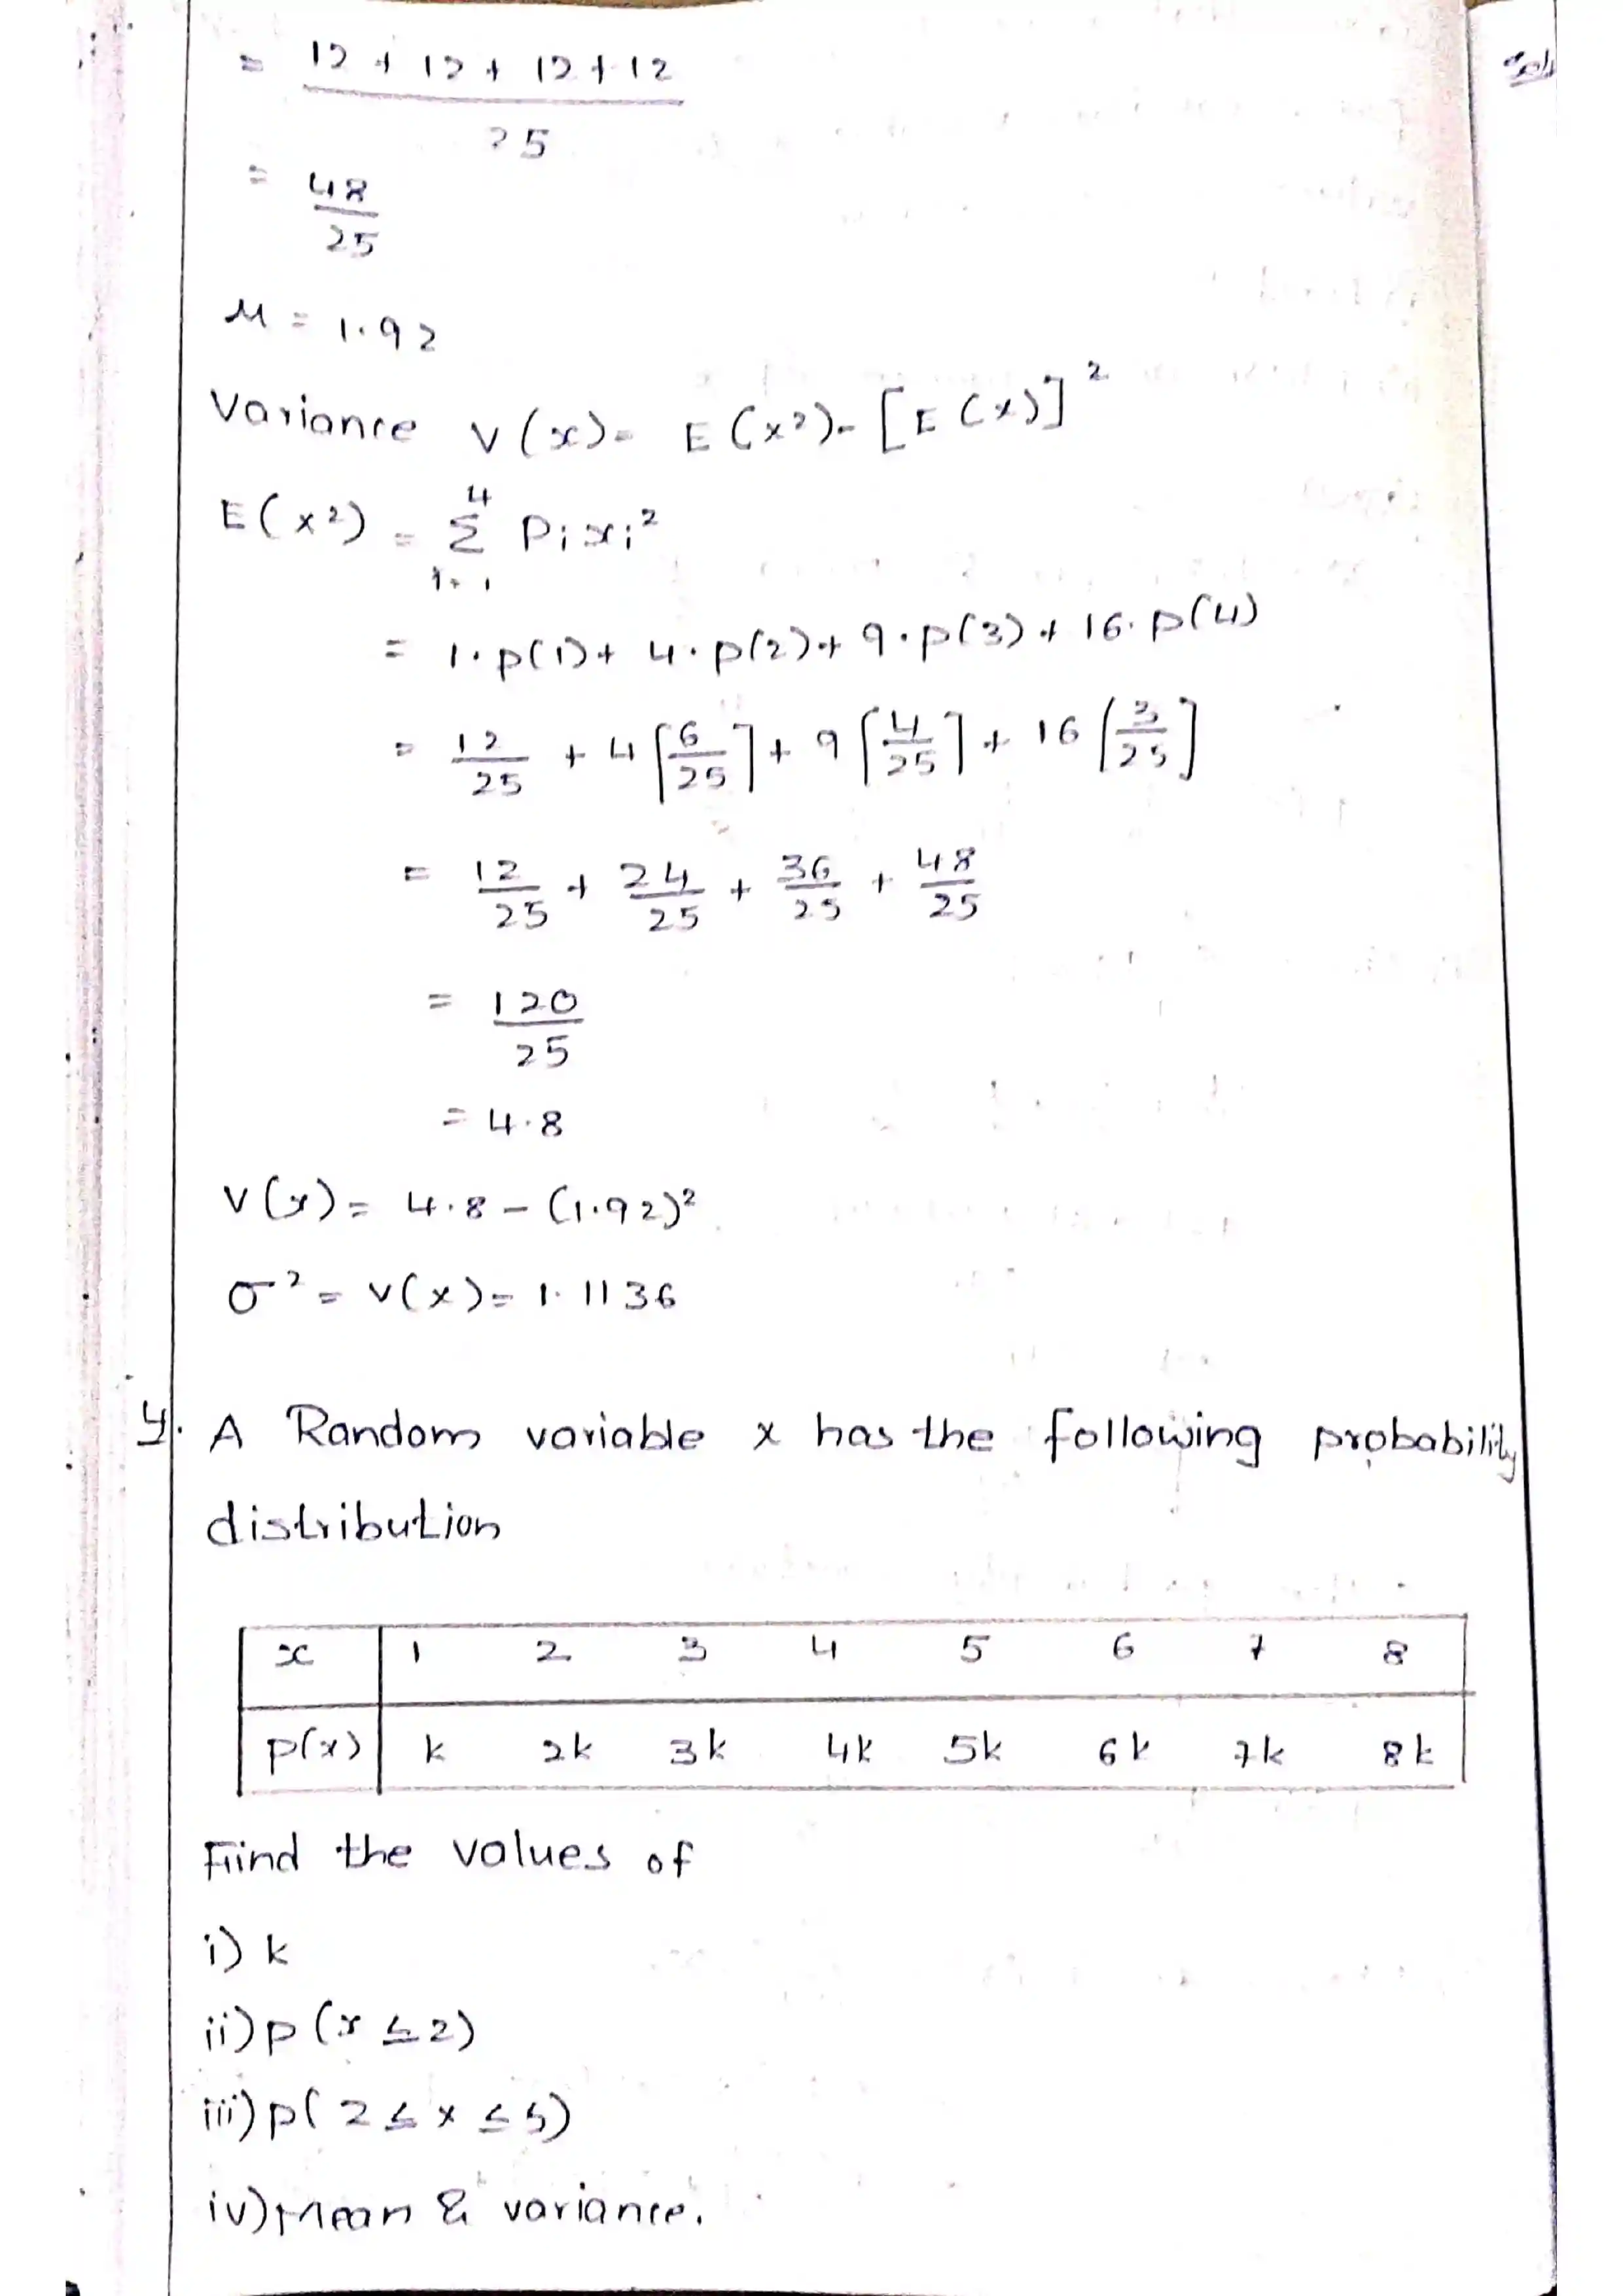 = 12 + 12 + 12 + 12
25
= 48
25
μ = 1.92
Variance V(x) = E(x²) - [E(x)]²
E(x²) = 4 Σ i=1 Pi xi²
= 1·p(1) + 4·p(2) + 9·p(3) + 16·p(4)
= 12/25 + 4[6/25] + 9[4/25] + 16[3/25]
= 12/25 + 24/25 + 36/25 + 48/25
= 120
25
= 4.8
V(x) = 4.8 - (1.92)²
σ² = V(x) = 1.1136
4. A Random variable x has the following probability
distribution
x 1 2 3 4 5 6 7 8
p(x) k 2k 3k 4k 5k 6k 7k 8k
Find the values of
i) k
ii) p(x ≤ 2)
iii) p(2 ≤ x ≤ 5)
iv) Mean & variance.